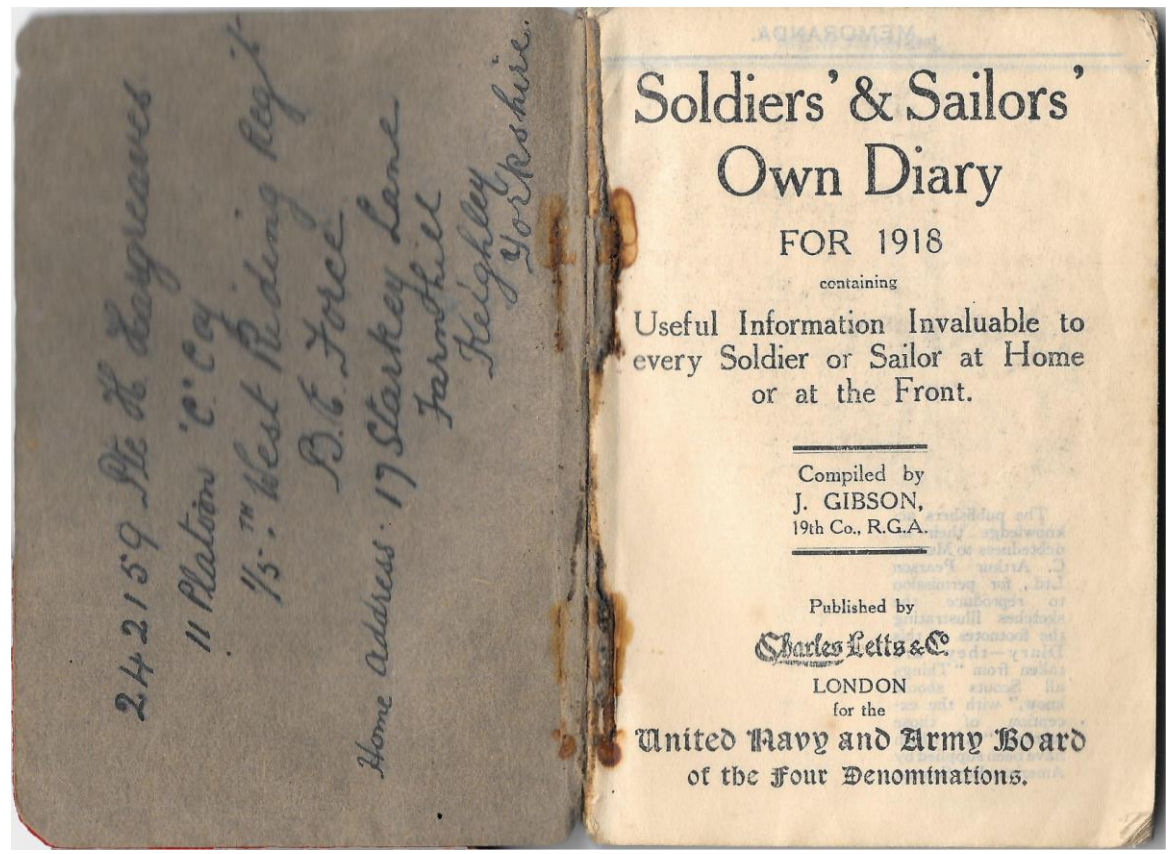 242159 Pte H Hargreaves
11 Platoon "C" Coy
1/5.TH West Riding Regt
B.E. Force
Home Address. 17 Starkey Lane
Farnhill
Keighley
Yorkshire.
MEMORANDA.
Soldiers' & Sailors'
Own Diary
FOR 1918
containing
Useful Information Invaluable to
every Soldier or Sailor at Home
or at the Front.
Compiled by
J. GIBSON,
19th Co., R.G.A.
Published by
Charles Letts & Co.
LONDON
for the
United Navy and Army Board
of the Four Denominations.